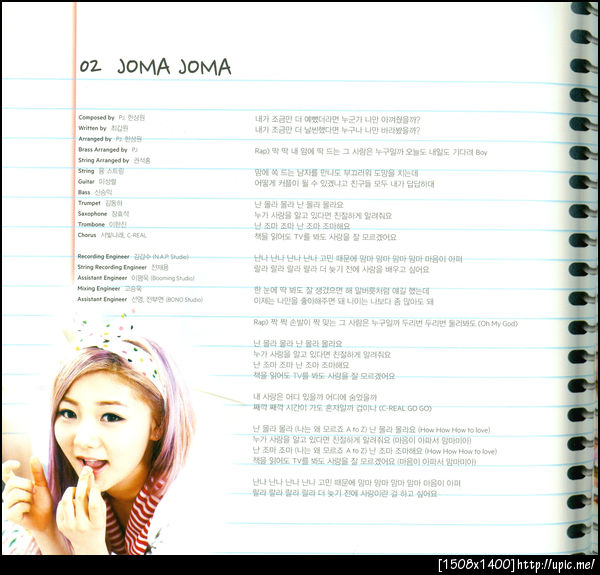 02 JOMA JOMA
Composed by PJ, 한상원
Written by 최갑원
Arranged by PJ, 한상원
Brass Arranged by PJ
String Arranged by 권석홍
String 융 스트링
Guitar 이성렬
Bass 신승익
Trumpet 김동하
Saxophone 장효석
Trombone 이한진
Chorus 서빛나래, C-REAL
Recording Engineer 김갑수 (N.A.P. Studio)
String Recording Engineer 전재용
Assistant Engineer 이평욱 (Booming Studio)
Mixing Engineer 고승욱
Assistant Engineer 선영, 전부면 (BONO Studio)
내가 조금만 더 예뻤더라면 누군가 나만 아껴줬을까?
내가 조금만 더 날씬했다면 누구나 나만 바라봤을까?
Rap) 딱 딱 내 맘에 딱 드는 그 사람은 누구일까 오늘도 내일도 기다려 Boy
맘에 쏙 드는 남자를 만나도 부끄러워 도망을 치는데
어떻게 커플이 될 수 있겠냐고 친구들 모두 내가 답답하대
난 몰라 몰라 난 몰라 몰라요
누가 사랑을 알고 있다면 친절하게 알려줘요
난 조마 조마 난 조마 조마해요
책을 읽어도 TV를 봐도 사랑을 잘 모르겠어요
난나 난나 난나 난나 고민 때문에 맘마 맘마 맘마 맘마 마음이 아퍼
랄라 랄라 랄라 랄라 더 늦기 전에 사랑을 배우고 싶어요
한 눈에 딱 봐도 잘 생겼으면 해 말버릇처럼 얘길 했는데
이제는 나만을 좋아해주면 돼 나이는 나보다 좀 많아도 돼
Rap) 짝 짝 손발이 짝 맞는 그 사람은 누구일까 두리번 두리번 둘러봐도 (Oh My God)
난 몰라 몰라 난 몰라 몰라요
누가 사랑을 알고 있다면 친절하게 알려줘요
난 조마 조마 난 조마 조마해요
책을 읽어도 TV를 봐도 사랑을 잘 모르겠어요
내 사랑은 어디 있을까 어디에 숨었을까
째깍 째깍 시간이 가도 혼자일까 겁이나 (C-REAL GO GO)
난 몰라 몰라 (나는 왜 모르죠 A to Z) 난 몰라 몰라요 (How How How to love)
누가 사랑을 알고 있다면 친절하게 알려줘요 (마음이 아파서 맘마미아)
난 조마 조마 (나는 왜 모르죠 A to Z) 난 조마 조마해요 (How How How to love)
책을 읽어도 TV를 봐도 사랑을 잘 모르겠어요 (마음이 아파서 맘마미아)
난나 난나 난나 난나 고민 때문에 맘마 맘마 맘마 맘마 마음이 아퍼
랄라 랄라 랄라 랄라 더 늦기 전에 사랑이란 걸 하고 싶어요
[1508x1400]http://upic.me/